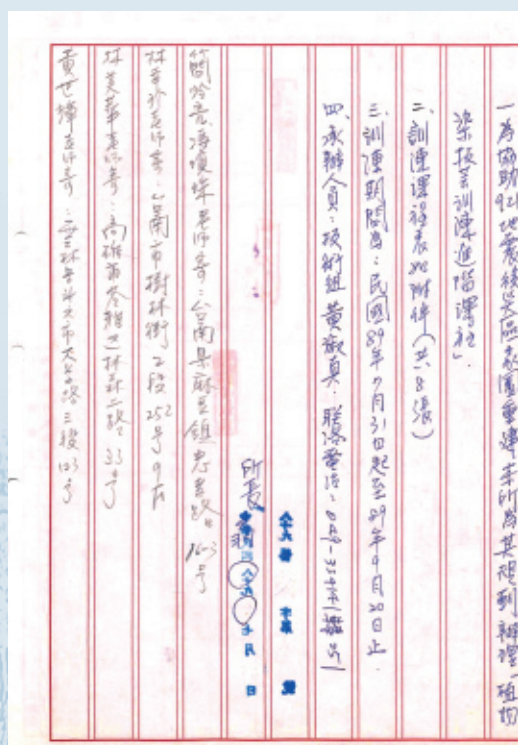 一、為協助921地震後災區家園重建本所為其規劃辦理「植物
染技芸訓練進階課程」.
二、訓練課程表如附件(共8張)
三、訓練期間為:民國89年7月31日起至89年9月20日止.
四、承辦人員:技術組 黃淑真. 聯洛電話:
所長
簡玲亮、馮瓊珠老师寄:台南县麻豆鎮忠孝路 163号
林幸珍老师寄:台南市樹林街2段252号9F
林美華老师寄:高雄市苓雅区林森二路 33号
黃世輝老师寄:雲林县斗六市大學路三段123号